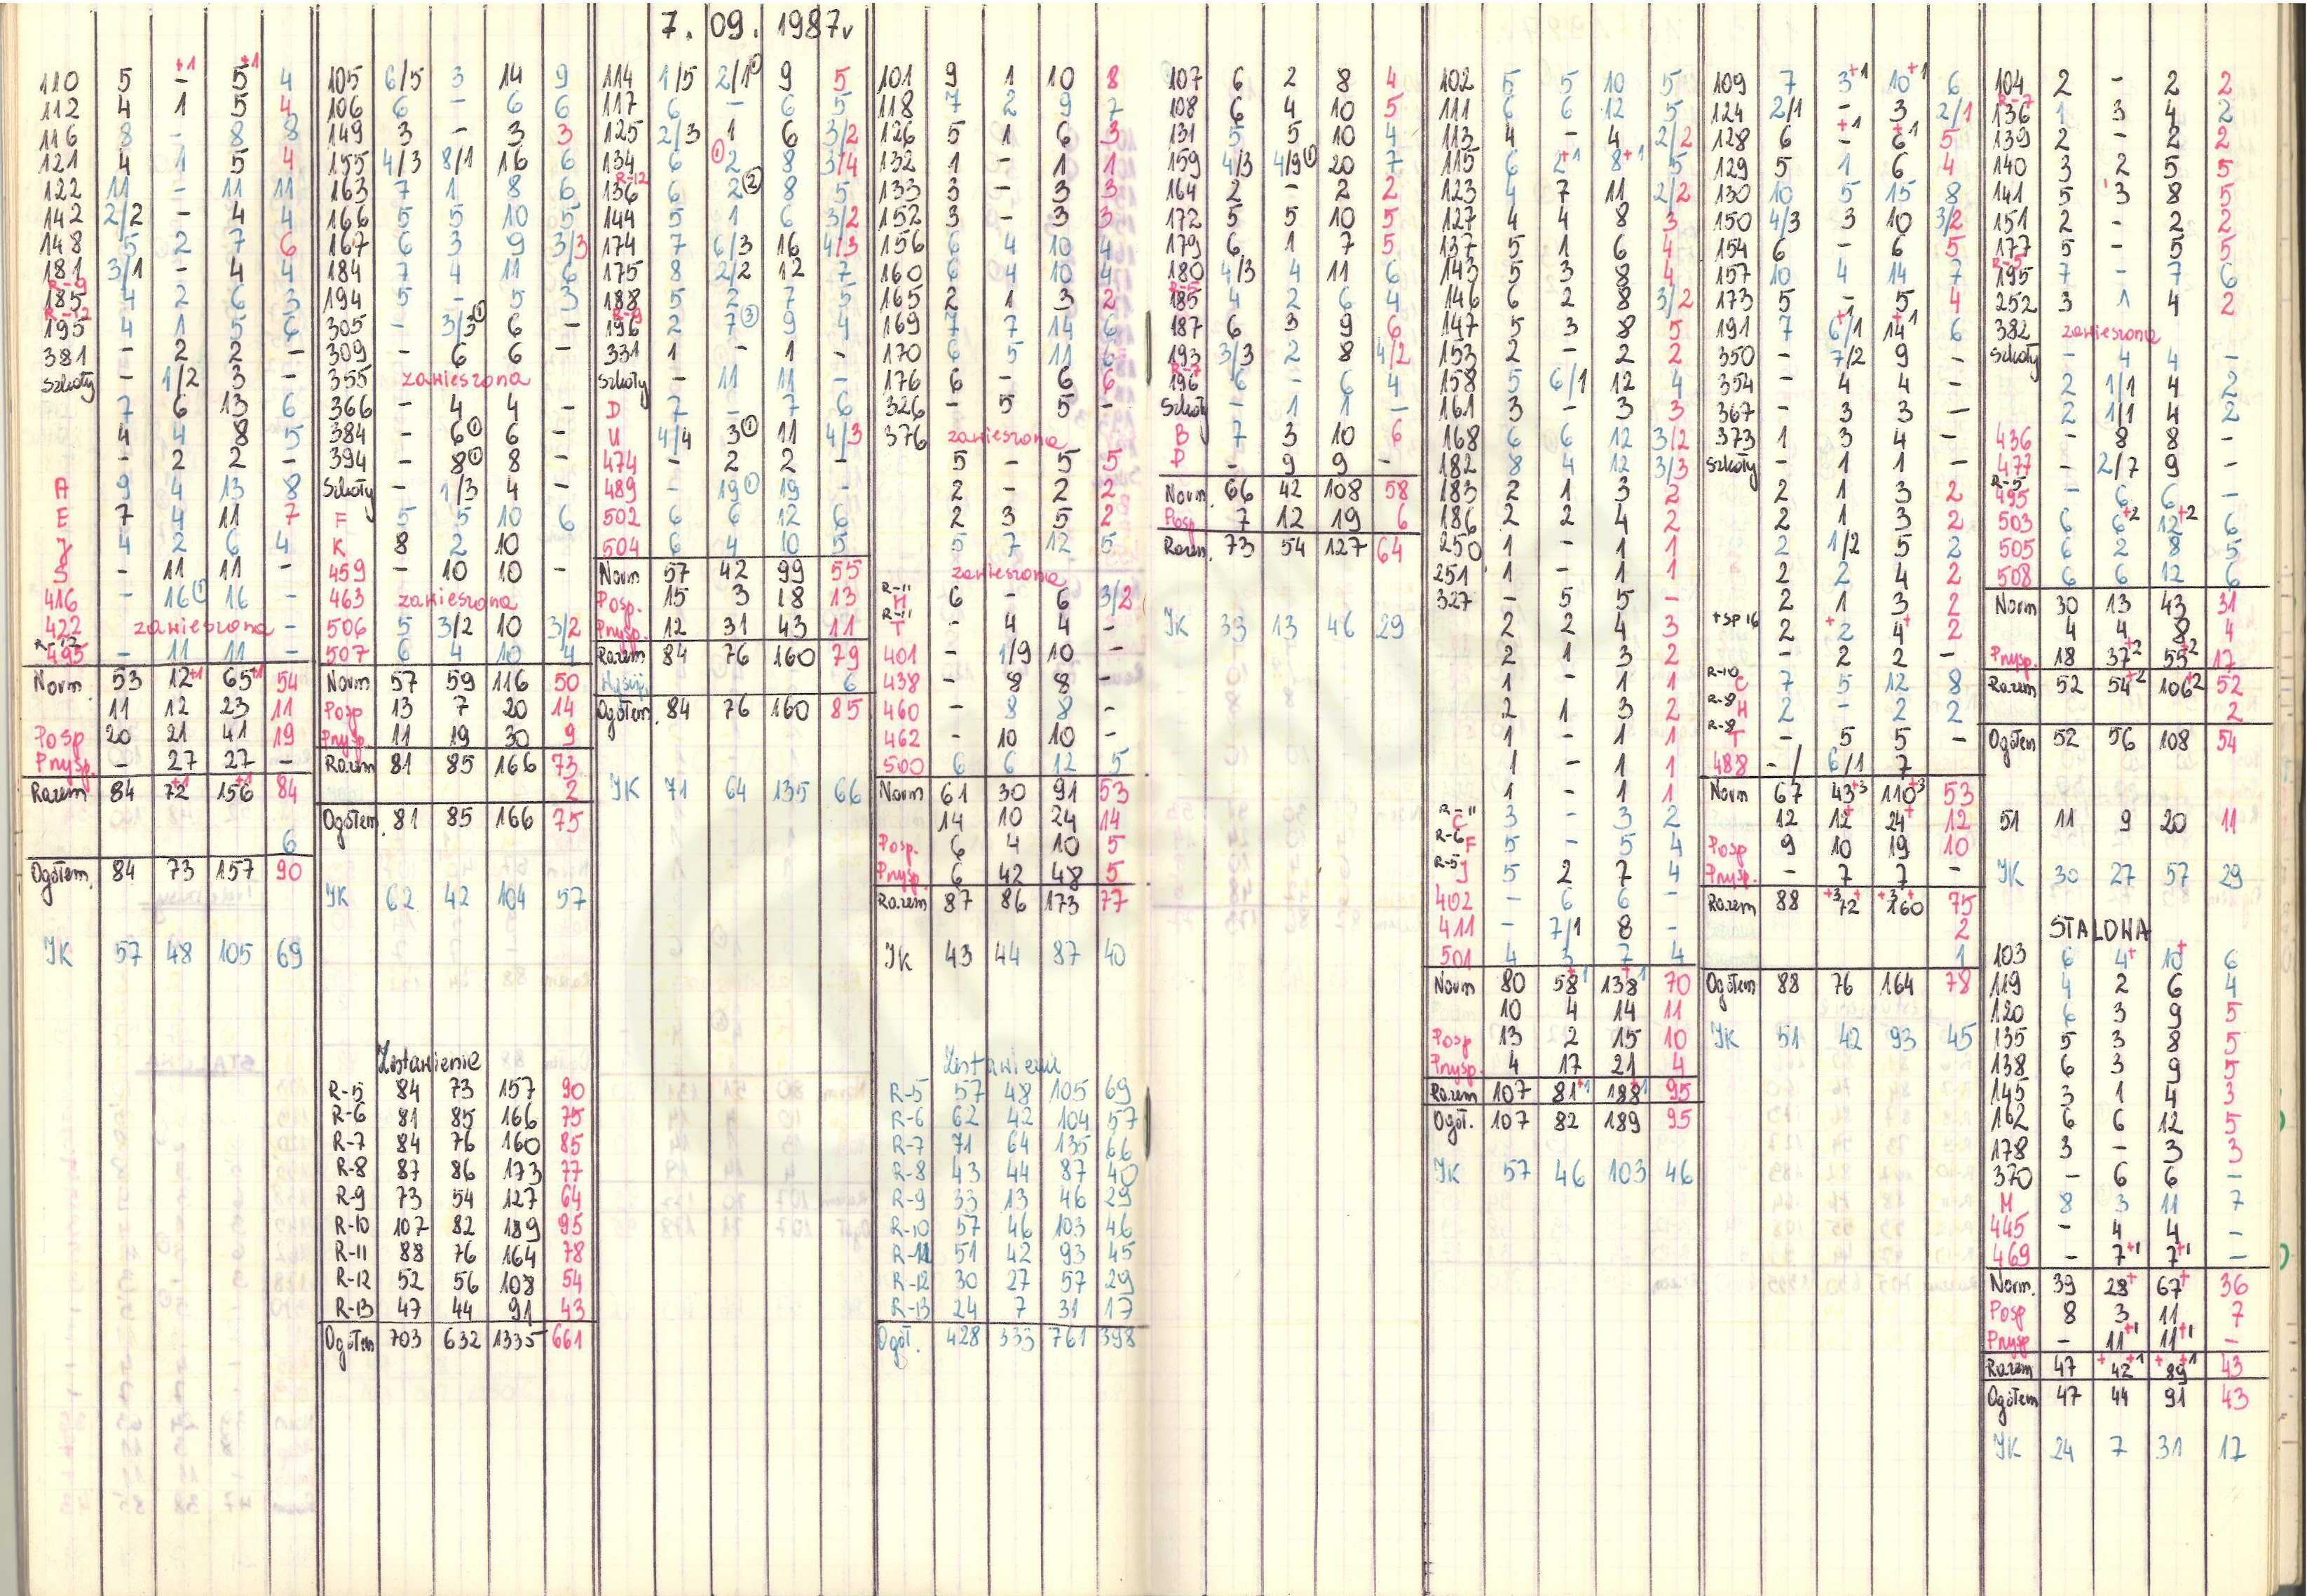 7. 09. 1987r
110 5 - 5+1 4
112 4 1 5 4
116 8 - 8 8
121 4 1 5 4
122 11 - 11 11
142 2/2 - 4 4
148 5 2 7 6
181 3/1 - 4 4
185 4 2 6 3
R-12
195 4 1 5 6
381 - 2 2 -
Szkoły - 1/2 3 -
7 6 13 6
4 4 8 5
- 2 2 -
A 9 4 13 8
E 7 4 11 7
J 4 2 6 4
S - 11 11 -
416 - 16① 16 -
422 zawieszona -
R-12
495 - 11 11 -
Norm 53 12+1 65+1 54
11 12 23 11
Posp 20 21 41 19
Przysp. - 27 27 -
Razem 84 72+1 156+1 84
6
Ogółem. 84 73 157 90
JK 57 48 105 69
105 6/5 3 14 9
106 6 - 6 6
149 3 - 3 3
155 4/3 8/1 16 6
163 7 1 8 6
166 5 5 10 5
167 6 3 9 3/3
184 7 4 11 6
194 5 - 5 3
305 - 3/3① 6 -
309 - 6 6 -
355 zawieszona
366 - 4 4 -
384 - 6① 6 -
394 - 8① 8 -
Szkoły - 1/3 4 -
F 5 5 10 6
K 8 2 10
459 - 10 10 -
463 zawieszona
506 5 3/2 10 3/2
507 6 4 10 4
Norm 57 59 116 50
Posp 13 7 20 14
Przysp. 11 19 30 9
Razem 81 85 166 73
2
Ogółem. 81 85 166 75
JK 62 42 104 57
Zestawienie
R-5 84 73 157 90
R-6 81 85 166 75
R-7 84 76 160 85
R-8 87 86 173 77
R-9 73 54 127 64
R-10 107 82 189 95
R-11 88 76 164 78
R-12 52 56 108 54
R-13 47 44 91 43
Ogółem 703 632 1335 661
114 1/5 2/1① 9 5
117 6 - 6 5
125 2/3 1 6 3/2
134 6 ①2 8 3/4
R-12
136 6 2② 8 5
144 5 1 6 3/2
174 7 6/3 16 4/3
175 8 2/2 12 7
188 5 2 7 5
R-9
196 2 7③ 9 4
331 1 - 1 -
Szkoły - 11 11 -
D 7 - 7 6
U 4/4 3① 11 4/3
474 - 2 2 -
489 - 19① 19 -
502 6 6 12 6
504 6 4 10 5
Norm 57 42 99 55
Posp. 15 3 18 13
Przysp. 12 31 43 11
Razem 84 76 160 79
6
Ogółem. 84 76 160 85
JK 71 64 135 66
101 9 1 10 8
118 7 2 9 7
126 5 1 6 3
132 1 - 1 1
133 3 - 3 3
152 3 - 3 3
156 6 4 10 4
160 6 4 10 4
165 2 1 3 2
169 7 7 14 6
170 6 5 11 6
176 6 - 6 6
326 - 5 5 -
376 zawieszona
5 - 5 5
2 - 2 2
2 3 5 2
5 7 12 5
zawieszona
R-11
H 6 - 6 3/2
R-11
T - 4 4 -
401 - 1/9 10 -
438 - 8 8 -
460 - 8 8 -
462 - 10 10 -
500 6 6 12 5
Norm 61 30 91 53
14 10 24 14
Posp. 6 4 10 5
Przysp. 6 42 48 5
Razem 87 86 173 77
JK 43 44 87 40
Zestawienie
R-5 57 48 105 69
R-6 62 42 104 57
R-7 71 64 135 66
R-8 43 44 87 40
R-9 33 13 46 29
R-10 57 46 103 46
R-11 51 42 93 45
R-12 30 27 57 29
R-13 24 7 31 17
Ogół. 428 333 761 398
107 6 2 8 4
108 6 4 10 5
131 5 5 10 4
159 4/3 4/9① 20 7
164 2 - 2 2
172 5 5 10 5
179 6 1 7 5
180 4/3 4 11 6
R-5
185 4 2 6 4
187 6 3 9 6
193 3/3 2 8 4/2
R-7
196 6 - 6 4
Szkoły - 1 1 -
B 7 3 10 6
P - 9 9 -
Norm 66 42 108 58
Posp. 7 12 19 6
Razem. 73 54 127 64
JK 33 13 46 29
102 5 5 10 5
111 6 6 12 5
113 4 - 4 2/2
115 6 2+1 8+1 5
123 4 7 11 2/2
127 4 4 8 3
137 5 1 6 4
143 5 3 8 4
146 6 2 8 3/2
147 5 3 8 5
153 2 - 2 2
158 5 6/1 12 4
161 3 - 3 3
168 6 6 12 3/2
182 8 4 12 3/3
183 2 1 3 2
186 2 2 4 2
250 1 - 1 1
251 1 - 1 1
327 - 5 5 -
2 2 4 3
2 1 3 2
1 - 1 1
2 1 3 2
1 - 1 1
1 - 1 1
1 - 1 1
R-11
C 3 - 3 2
R-6
F 5 - 5 4
R-5
J 5 2 7 4
402 - 6 6 -
411 - 7/1 8 -
501 4 3 7 4
Norm 80 58+1 138+1 70
10 4 14 11
Posp 13 2 15 10
Przysp. 4 17 21 4
Razem 107 81+1 188+1 95
Ogół. 107 82 189 95
JK 57 46 103 46
109 7 3+1 10+1 6
124 2/1 - 3 2/1
128 6 -+1 6+1 5
129 5 1 6 4
130 10 5 15 8
150 4/3 3 10 3/2
154 6 - 6 5
157 10 4 14 7
173 5 - 5 4
191 7 6/1+1 14+1 6
350 - 7/2 9 -
354 - 4 4 -
367 - 3 3 -
373 1 3 4 -
Szkoły - 1 1 -
2 1 3 2
2 1 3 2
2 1/2 5 2
2 2 4 2
2 1 3 2
+SP 16 2 +2 4+ 2
- 2 2 -
R-10
C 7 5 12 8
R-8
H 2 - 2 2
R-8
T - 5 5 -
488 - / 6/1 7
Norm 67 43+3 110+3 53
12 12+ 24+ 12
Posp 9 10 19 10
Przysp. - 7 7 -
Razem 88 +3 72+ +3 160+ 75
2
1
Ogółem 88 76 164 78
JK 51 42 93 45
104 2 - 2 2
R-7
136 1 3 4 2
139 2 - 2 2
140 3 2 5 5
141 5 3 8 5
151 2 - 2 2
177 5 - 5 5
R-5
195 7 - 7 6
252 3 1 4 2
382 zawieszona
Szkoły - 4 4 -
2 1/1 4 2
2 1/1 4 2
436 - 8 8 -
477 - 2/7 9 -
R-5
495 - 6 6 -
503 6 6+2 12+2 6
505 6 2 8 5
508 6 6 12 6
Norm 30 13 43 31
4 4 8 4
Przysp. 18 37+2 55+2 17
Razem 52 54+2 106+2 52
2
Ogółem 52 56 108 54
51 11 9 20 11
JK 30 27 57 29
STALOWA
103 6 4+ 10+ 6
119 4 2 6 4
120 6 3 9 5
135 5 3 8 5
138 6 3 9 5
145 3 1 4 3
162 6 6 12 5
178 3 - 3 3
370 - 6 6 -
M 8 3 11 7
445 - 4 4 -
469 - 7+1 7+1 -
Norm. 39 28+ 67+ 36
Posp 8 3 11 7
Przysp - 11+1 11+1 -
Razem 47 +42+1 +89+1 43
Ogółem 47 44 91 43
JK 24 7 31 17